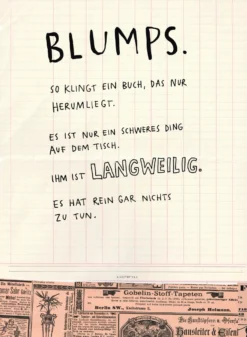 BLUMPS.
SO KLINGT EIN BUCH, DAS NUR
HERUMLIEGT.
ES IST NUR EIN SCHWERES DING
AUF DEM TISCH.
IHM IST LANGWEILIG.
ES HAT REIN GAR NICHTS
ZU TUN.
Gobelin-Stoff-Tapeten
Berlin SW.,
Joseph Heimann.